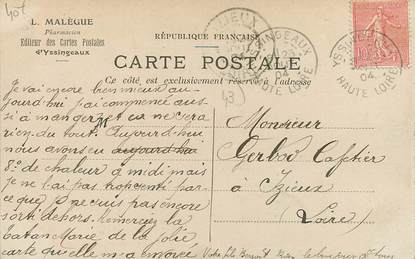 407
L. MALÈGUE
Pharmacien
Editeur des Cartes Postales
d'Yssingeaux
RÉPUBLIQUE FRANÇAISE
CARTE POSTALE
Ce côté est exclusivement réservé à l'adresse
YSSINGEAUX
04
HAUTE LOIRE
YSSINGEAUX
04
HAUTE LOIRE
43
J'ai encore bien mieux au-
jourd'hui j'ai commencé aus-
si à manger et ce ne sera
rien du tout. Aujourd'hui
nous avons eu aujourd'hui
8° de chaleur à midi mais
je ne l'ai pas
ce que je ne puis pas encore
sorti dehors. Remerciez la
Marie de la jolie
carte qu'elle m'a envoyé
Monsieur
Gerbod Cafetier
à Izieux
(Loire)
Votre fils